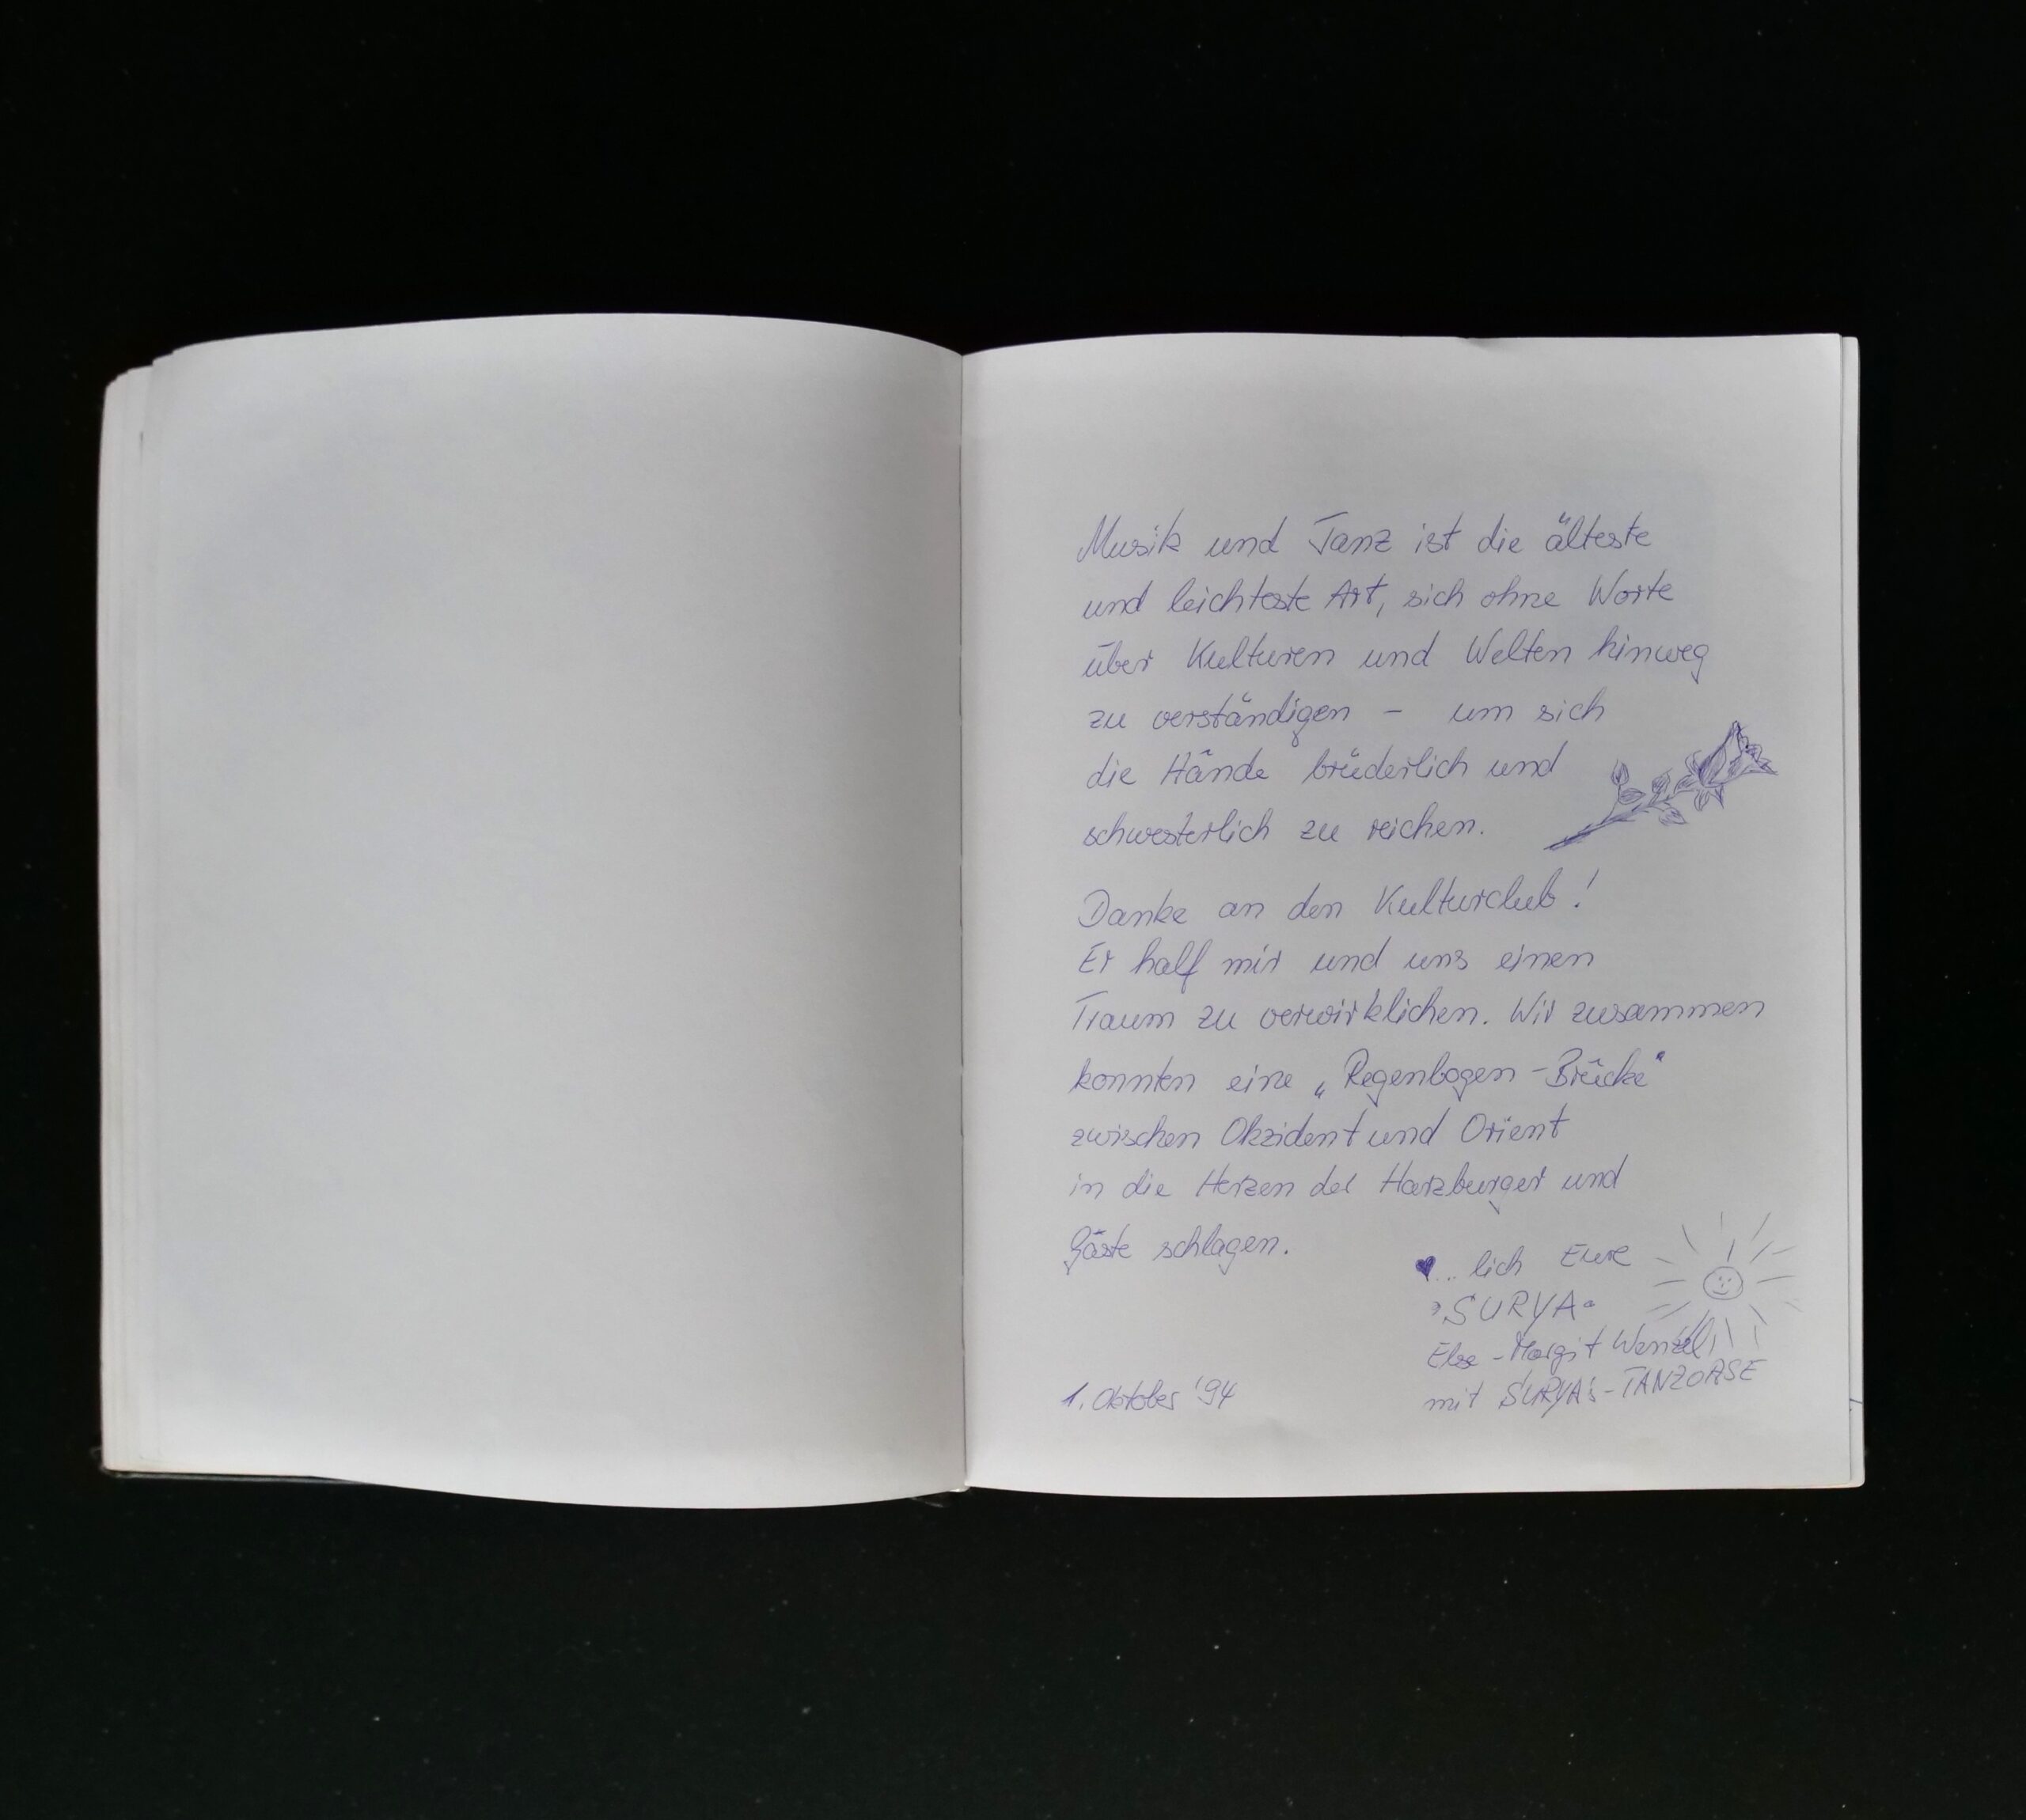 Musik und Tanz ist die älteste
und leichteste Art, sich ohne Worte
über Kulturen und Welten hinweg
zu verständigen – um sich
die Hände brüderlich und
schwesterlich zu reichen.
Danke an den Kulturclub!
Er half mir und uns einen
Traum zu verwirklichen. Wir zusammen
konnten eine „Regenbogen-Brücke"
zwischen Okzident und Orient
in die Herzen der Harzburger und
Gäste schlagen.
♥... lich Eure
SURYA
Else-Margit Wenzel
mit SURYA's-TANZOASE
1. Oktober '94